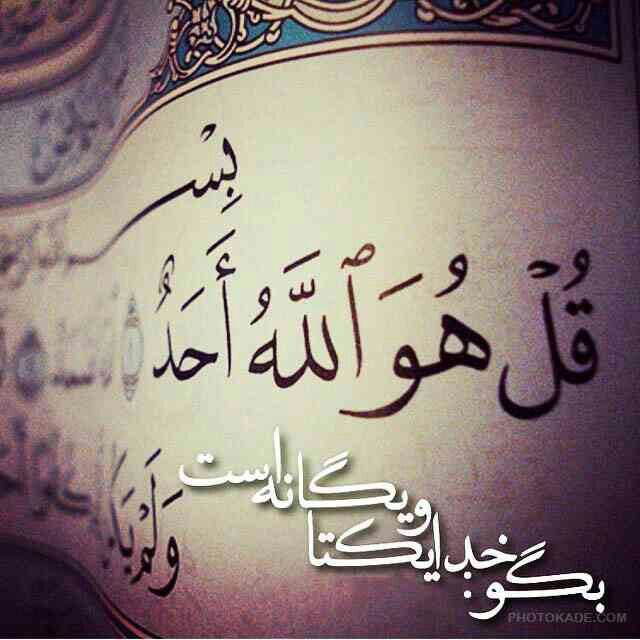 بِسْ
قُلْ هُوَ ٱللَّهُ أَحَدٌ
وَلَمْ
بگو: خدا یکتا
و یگانه است
PHOTOKADE.COM